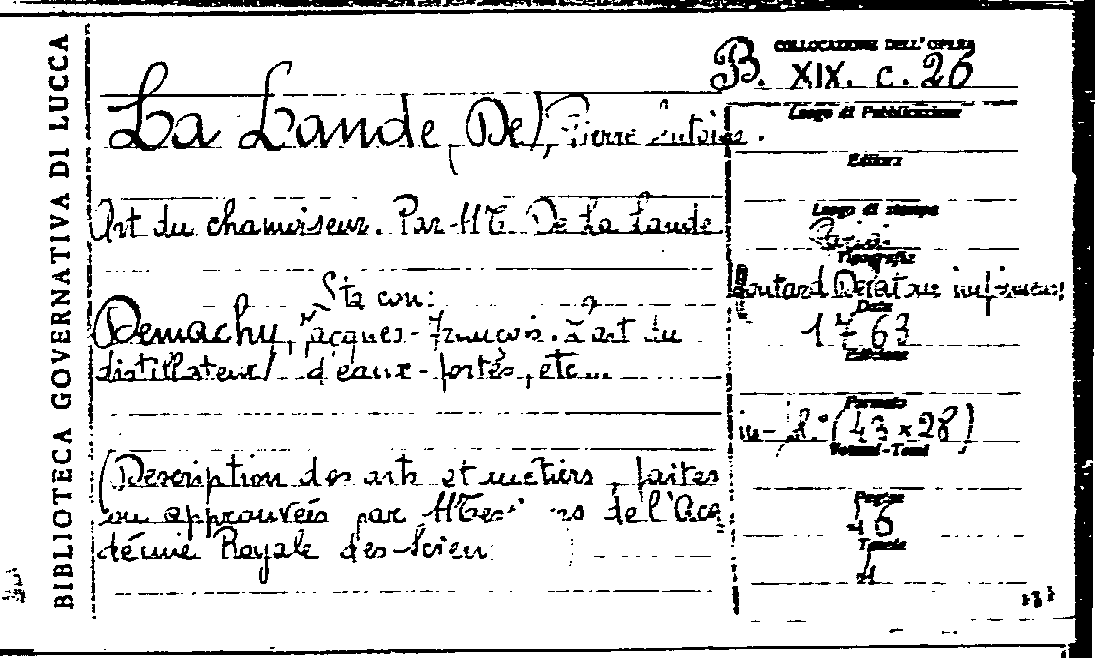 BIBLIOTECA GOVERNATIVA DI LUCCA
COLLOCAZIONE DELL'OPERA
B. XIX. c. 26
La Lande, De, Pierre Antoine.
Art du chamoiseur. Par M. De La Lande
Sta con:
Demachy, Jacques-François. L'art du
distillateur d'eaux-fortes, etc...
(Description des arts et metiers, faites
ou approuvées par de l'Aca
démie Royale des Scien
Luogo di Pubblicazione
Editore
Luogo di stampa
Parigi
Tipografia
Delatour
Data
1763
Edizione
Formato
in- (43 x 28)
Volumi-Tomi
Pagine
46
Tavole
4